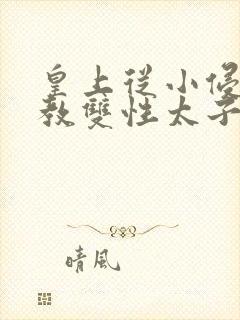 皇上從小侵
教雙性太子
晴風